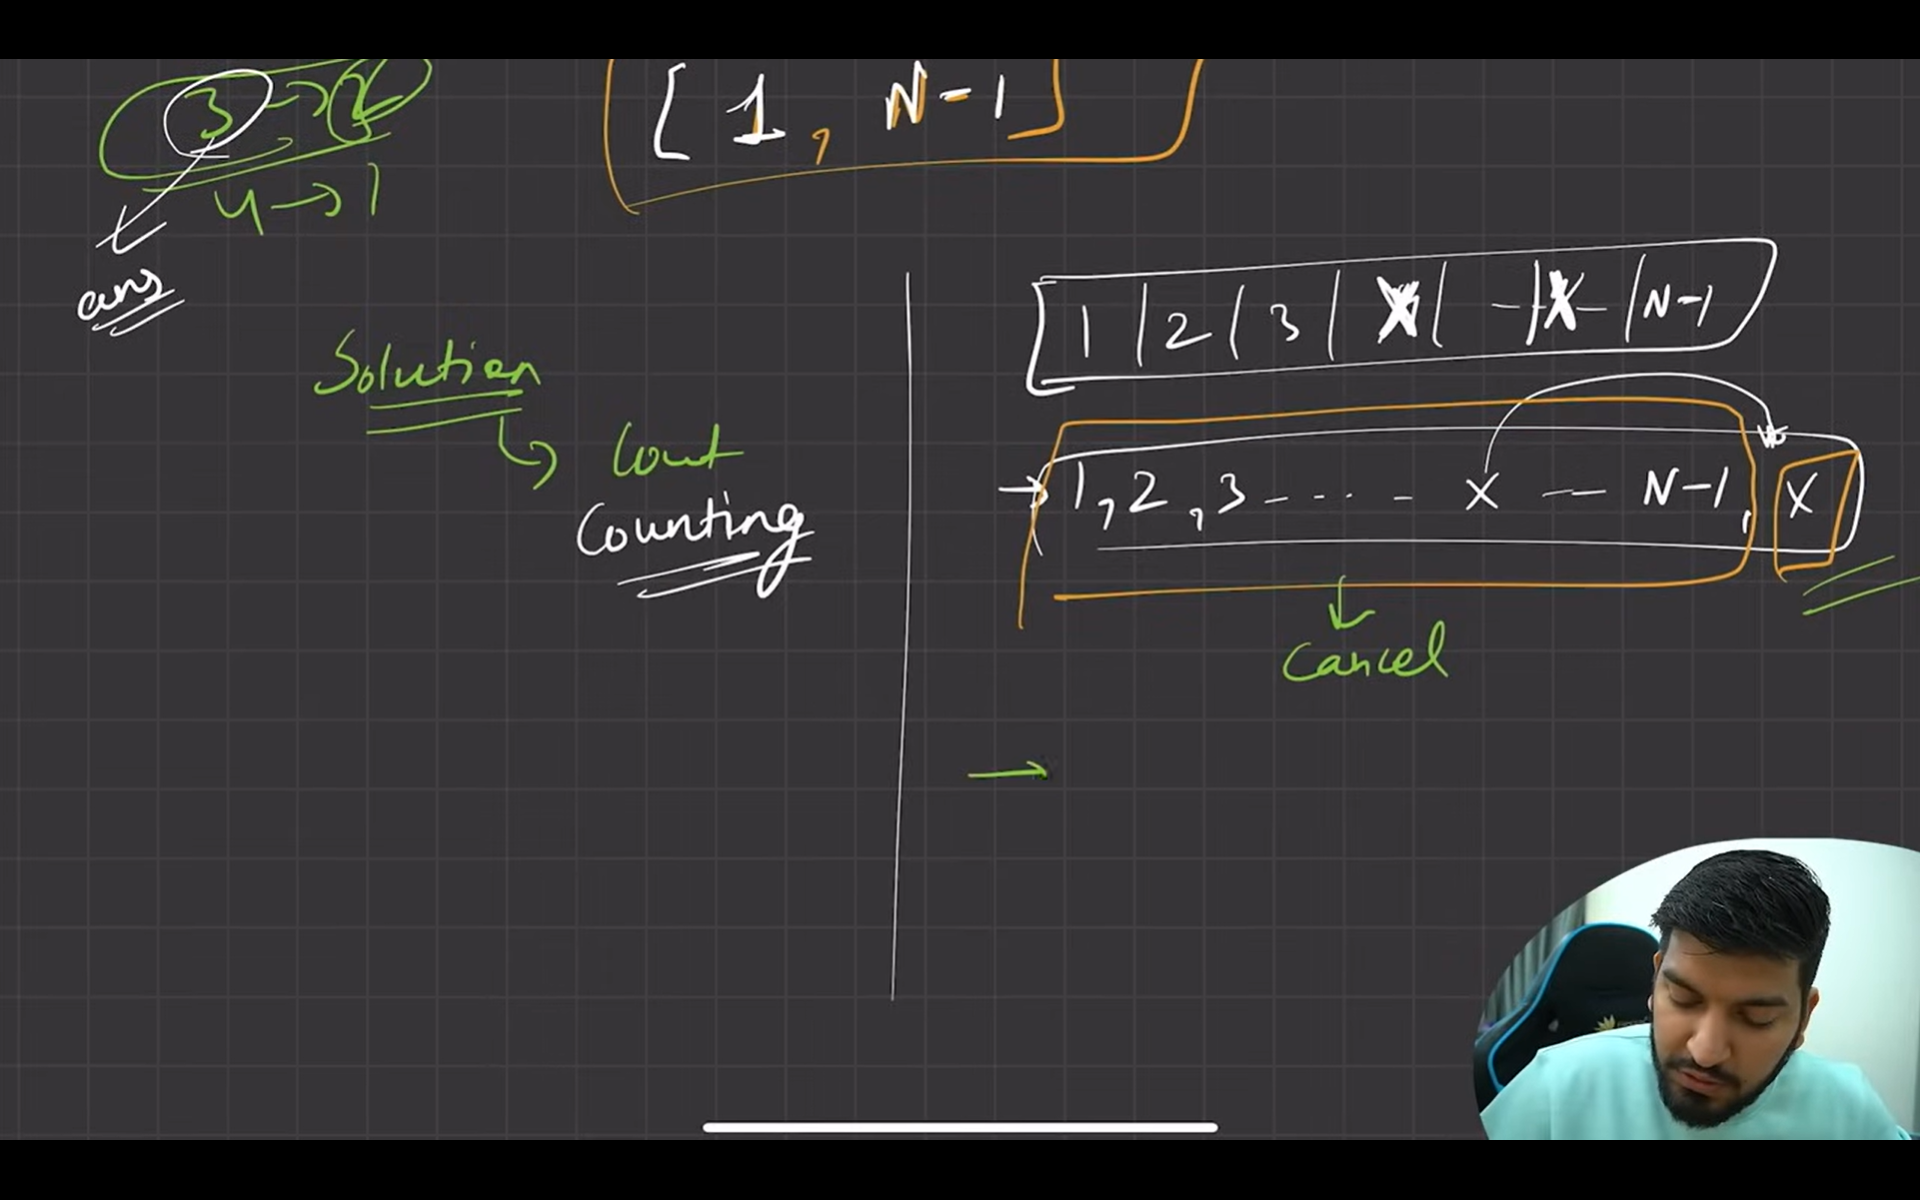 3 → 2
[ 1, N-1 ]
4 → 1
ans
Solution
Count
Counting
1 | 2 | 3 | X | - | X - | N-1
→ 1, 2, 3 - ... - X -- N-1, X
Cancel
→